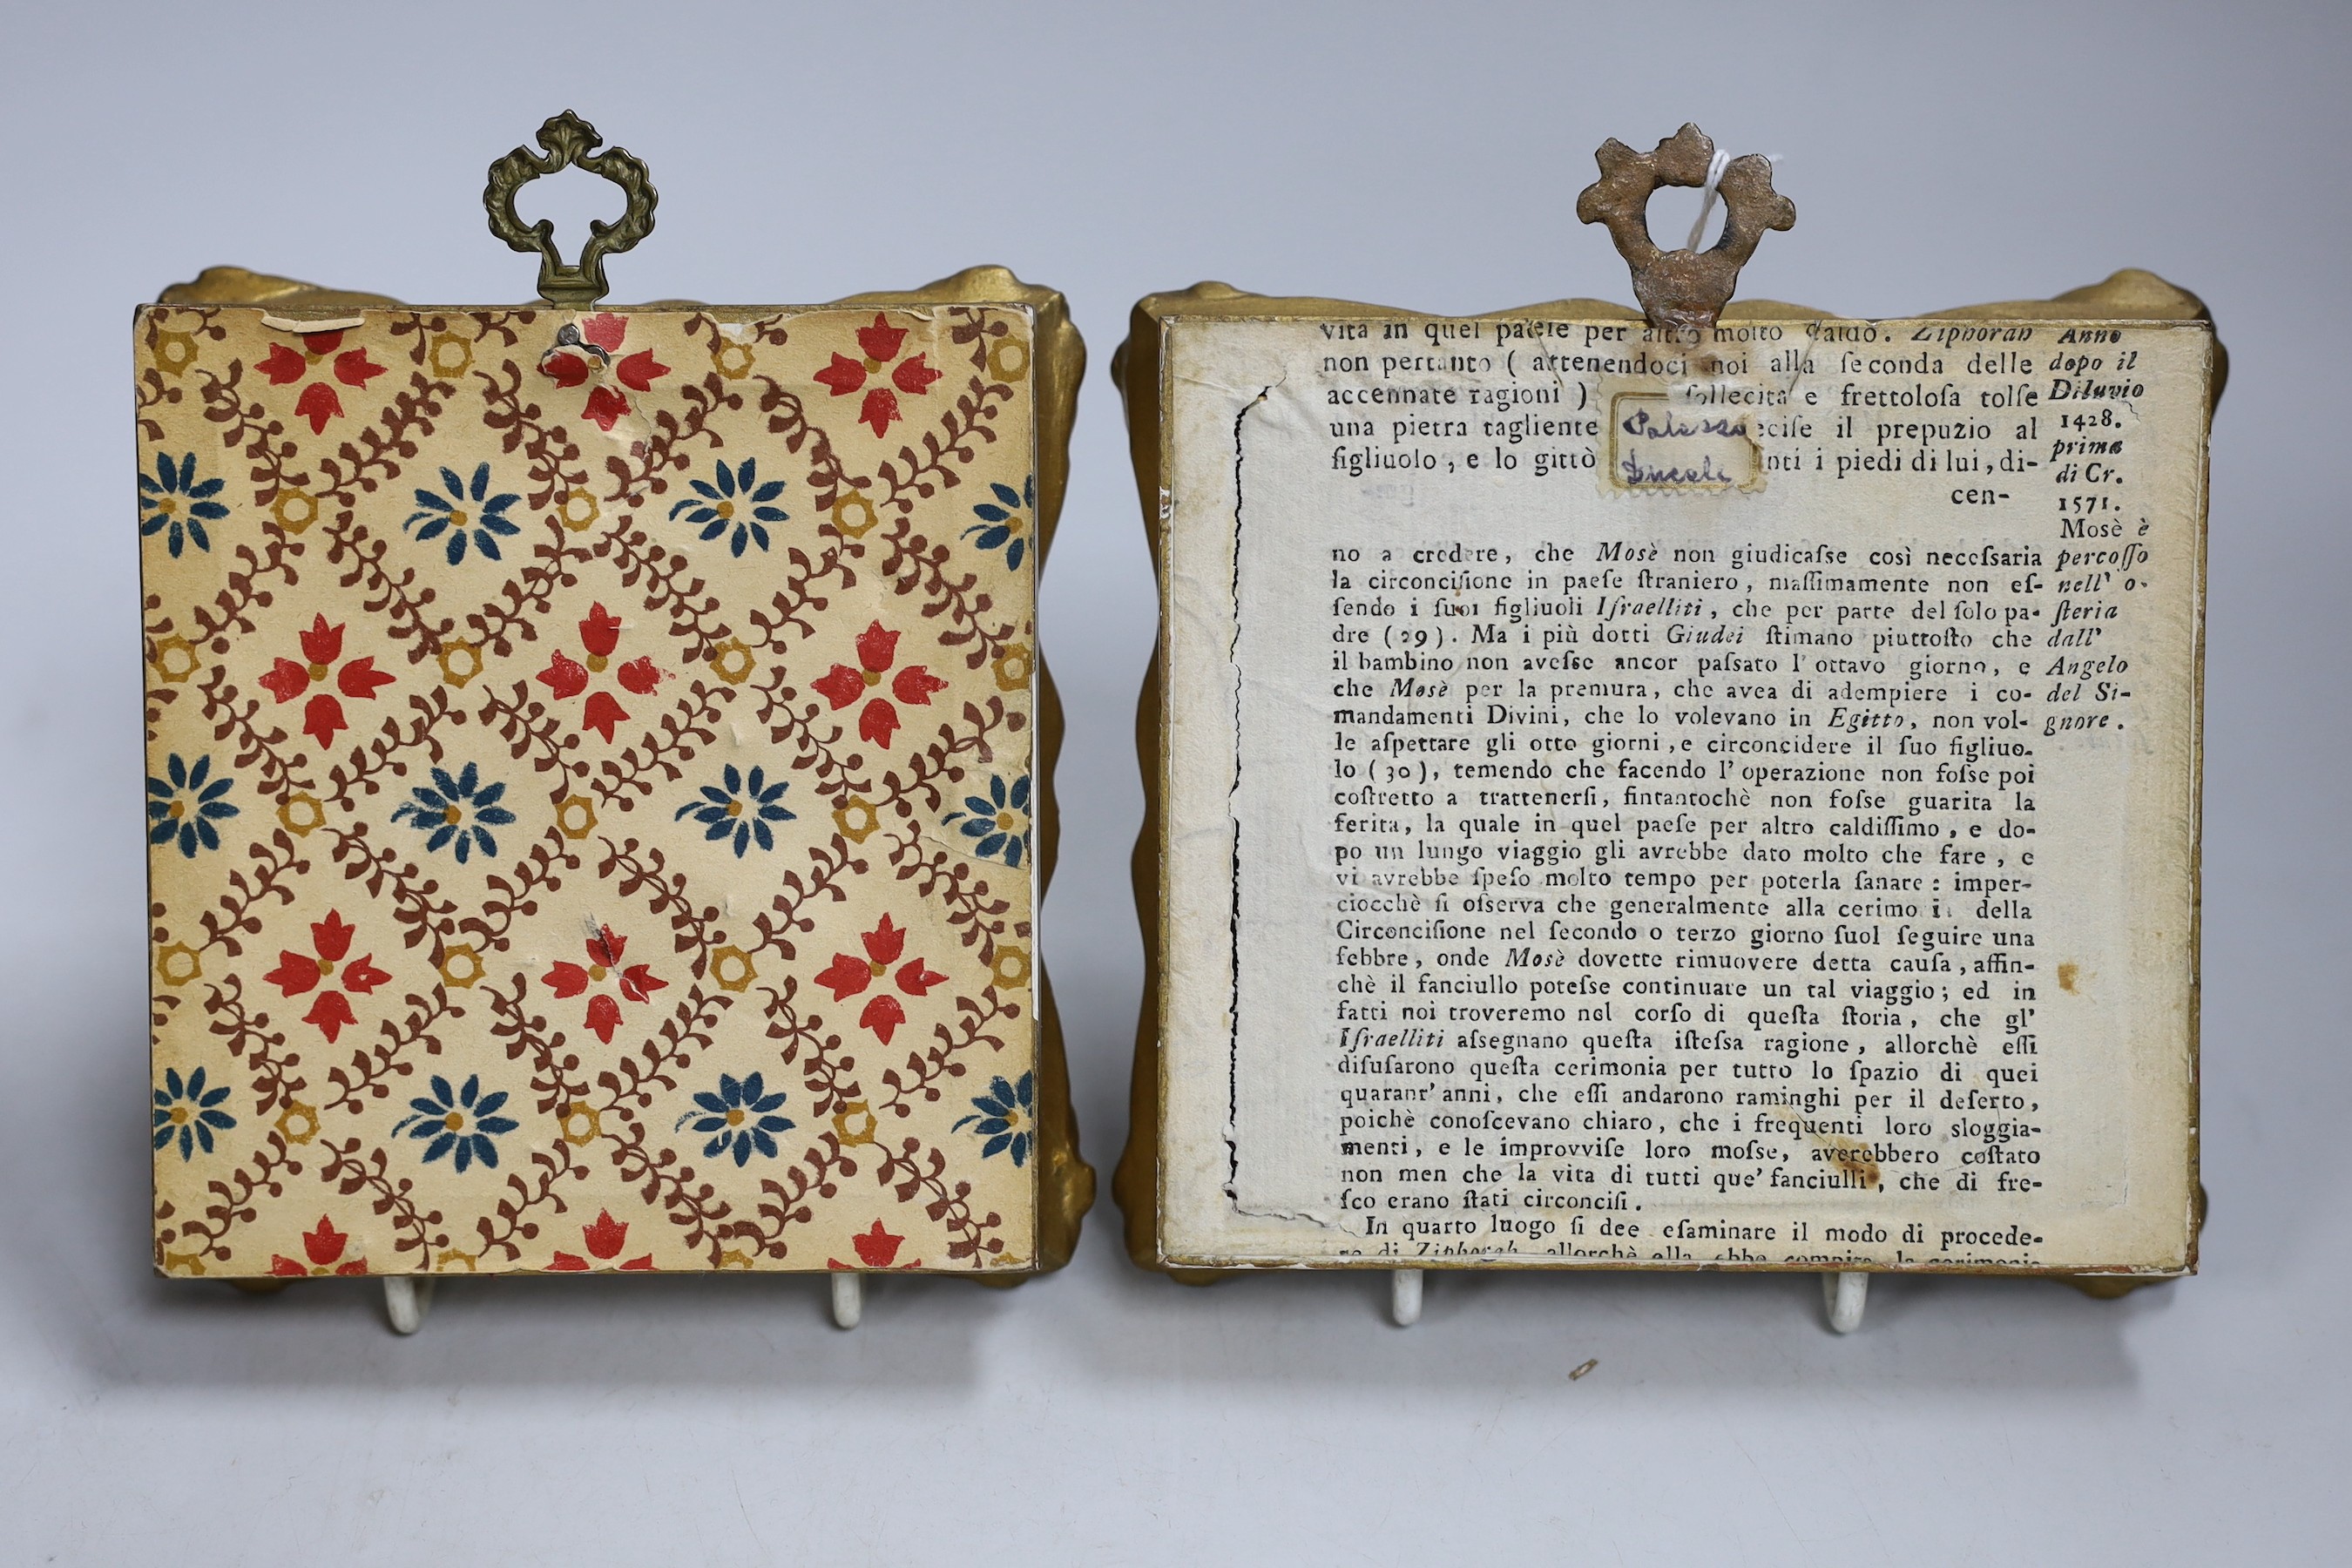 vita in quel paeſe per altro molto caldo. Ziphorah
non pertanto ( attenendoci noi alla ſeconda delle
accennate ragioni ) ſollecita e frettoloſa tolſe
una pietra tagliente eciſe il prepuzio al
figliuolo, e lo gittò nti i piedi di lui, di-
cen-
Palazzo
Ducale
Anno
dopo il
Diluvio
1428.
prima
di Cr.
1571.
Mosè è
percoſſo
nell' o-
ſteria
dall'
Angelo
del Si-
gnore.
no a credere, che Mosè non giudicaſse così neceſsaria
la circonciſione in paeſe ſtraniero, maſſimamente non eſ-
ſendo i ſuoi figliuoli Iſraelliti, che per parte del ſolo pa-
dre (29). Ma i più dotti Giudei ſtimano piuttoſto che
il bambino non aveſse ancor paſsato l'ottavo giorno, e
che Mosè per la premura, che avea di adempiere i co-
mandamenti Divini, che lo volevano in Egitto, non vol-
le aſpettare gli otto giorni, e circoncidere il ſuo figliuo-
lo (30), temendo che facendo l'operazione non foſse poi
coſtretto a trattenerſi, fintantochè non foſse guarita la
ferita, la quale in quel paeſe per altro caldiſſimo, e do-
po un lungo viaggio gli avrebbe dato molto che fare, e
vi avrebbe ſpeſo molto tempo per poterla ſanare: imper-
ciocchè ſi oſserva che generalmente alla cerimo i della
Circonciſione nel ſecondo o terzo giorno ſuol ſeguire una
febbre, onde Mosè dovette rimuovere detta cauſa, affin-
chè il fanciullo poteſse continuare un tal viaggio; ed in
fatti noi troveremo nel corſo di queſta ſtoria, che gl'
Iſraelliti aſsegnano queſta iſteſsa ragione, allorchè eſſi
diſuſarono queſta cerimonia per tutto lo ſpazio di quei
quarant' anni, che eſſi andarono raminghi per il deſerto,
poichè conoſcevano chiaro, che i frequenti loro sloggia-
menti, e le improvviſe loro moſse, averebbero coſtato
non men che la vita di tutti que' fanciulli, che di fre-
ſco erano ſtati circonciſi.
In quarto luogo ſi dee eſaminare il modo di procede-
re di Ziphorah, allorchè ella ebbe compita la cerimonia